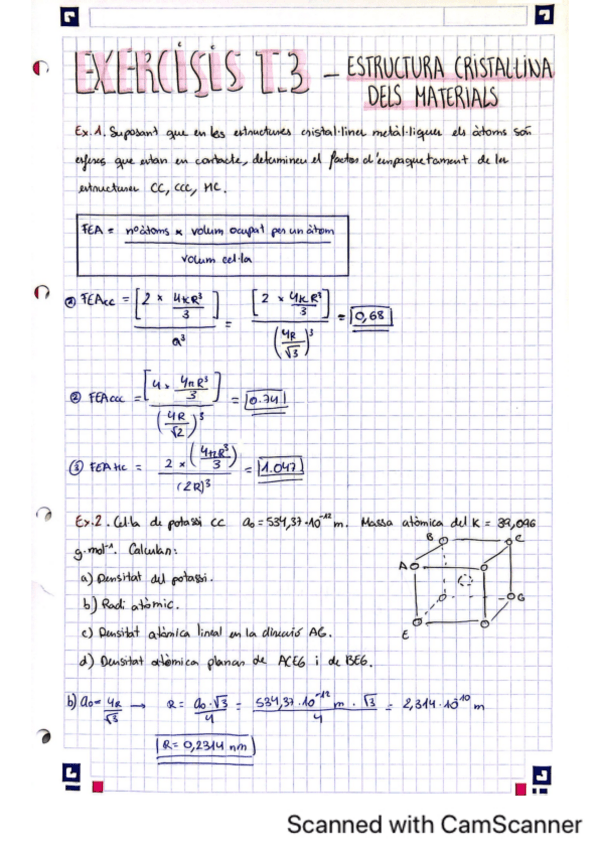 EXERCISIS T.3 - ESTRUCTURA CRISTAL·LINA
DELS MATERIALS
Ex.1. Suposant que en les estructures cristal·lines metàl·liques els àtoms són
esferes que estan en contacte, determineu el factor d'empaquetament de les
estructures CC, CCC, HC.
FEA = nºàtoms × volum ocupat per un àtom
volum cel·la
① FEAcc = [2 × 4πR³/3] / a³ = [2 × 4πR³/3] / (4R/√3)³ = 0,68
② FEAccc = [4 × 4πR³/3] / (4R/√2)³ = 0.74
③ FEAHC = 2 × (4πR³/3) / (2R)³ = 1.047
Ex.2. Cel·la de potassi CC a₀ = 534,37·10⁻¹² m. Massa atòmica del K = 39,096
g·mol⁻¹. Calculau:
a) Densitat del potassi.
b) Radi atòmic.
c) Densitat atòmica lineal en la direcció AG.
d) Densitat atòmica planar de ACEG i de BEG.
B
C
A
G
E
b) a₀ = 4R/√3 → R = a₀·√3/4 = 534,37·10⁻¹² m · √3/4 = 2,314·10⁻¹⁰ m
R = 0,2314 nm
Scanned with CamScanner